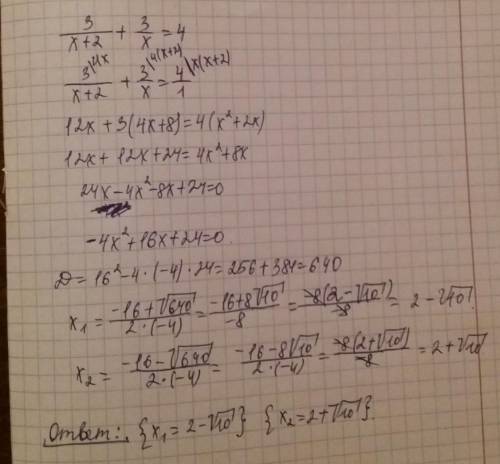 3/(x+2) + 3/x = 4
3\4x/(x+2) + 3\4(x+2)/x = 4\x(x+2)/1
12x + 3(4x+8) = 4(x²+2x)
12x + 12x + 24 = 4x² + 8x
24x - 4x² - 8x + 24 = 0
-4x² + 16x + 24 = 0.
D = 16² - 4 · (-4) · 24 = 256 + 384 = 640
x₁ = (-16 + √640)/(2 · (-4)) = (-16 + 8√10)/(-8) = (-8(2 - √10))/(-8) = 2 - √10.
x₂ = (-16 - √640)/(2 · (-4)) = (-16 - 8√10)/(2 · (-4)) = (-8(2 + √10))/(-8) = 2 + √10
Ответ: {x₁ = 2 - √10} {x₂ = 2 + √10}